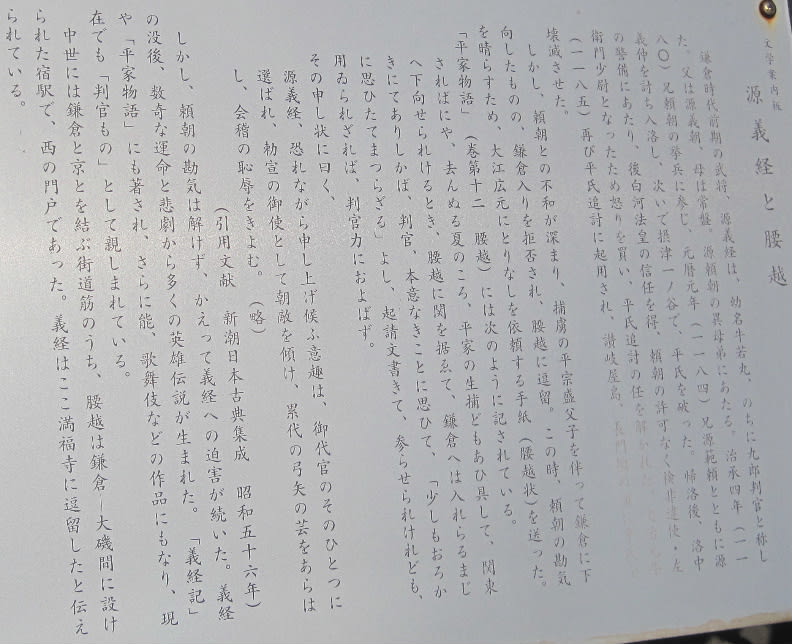 文学案内板
源義経と腰越
鎌倉時代前期の武将、源義経は、幼名牛若丸、のちに九郎判官と称し
た。父は源義朝、母は常盤、源頼朝の異母弟にあたる。治承四年（一一
八〇）兄頼朝の挙兵に参じ、元暦元年（一一八四）兄源範頼とともに源
義仲を討ち入洛し、次いで摂津一ノ谷で、平氏を破った。帰洛後、洛中
の警備にあたり、後白河法皇の信任を得、頼朝の許可なく検非違使・左
衛門少尉となったため怒りを買い、平氏追討の任を解かれた。
（一一八五）再び平氏追討に起用され、讃岐屋島、長門
壊滅させた。
しかし、頼朝との不和が深まり、捕虜の平宗盛父子を伴って鎌倉に下
向したものの、鎌倉入りを拒否され、腰越に逗留。この時、頼朝の勘気
を晴らすため、大江広元にとりなしを依頼する手紙（腰越状）を送った。
「平家物語」（巻第十二　腰越）には次のように記されている。
さればにや、去んぬる夏のころ、平家の生捕どもあひ具して、関東
へ下向せられけるとき、腰越に関を据ゑて、鎌倉へは入れらるまじ
きにてありしかば、判官、本意なきことに思ひて、「少しもおろか
に思ひたてまつらざる」よし、起請文書きて、参らせられけれども、
用ゐられざれば、判官力におよばず。
その申し状に曰く、
源義経、恐れながら申し上げ候ふ意趣は、御代官のそのひとつに
選ばれ、勅宣の御使として朝敵を傾け、累代の弓矢の芸をあらは
し、会稽の恥辱をきよむ。（略）
（引用文献　新潮日本古典集成　昭和五十六年）
しかし、頼朝の勘気は解けず、かえって義経への迫害が続いた。義経
の没後、数奇な運命と悲劇から多くの英雄伝説が生まれた。「義経記」
や「平家物語」にも著され、さらに能、歌舞伎などの作品にもなり、現
在でも「判官もの」として親しまれている。
中世には鎌倉と京とを結ぶ街道筋のうち、腰越は鎌倉―大磯間に設け
られた宿駅で、西の門戸であった。義経はここ満福寺に逗留したと伝え
られている。